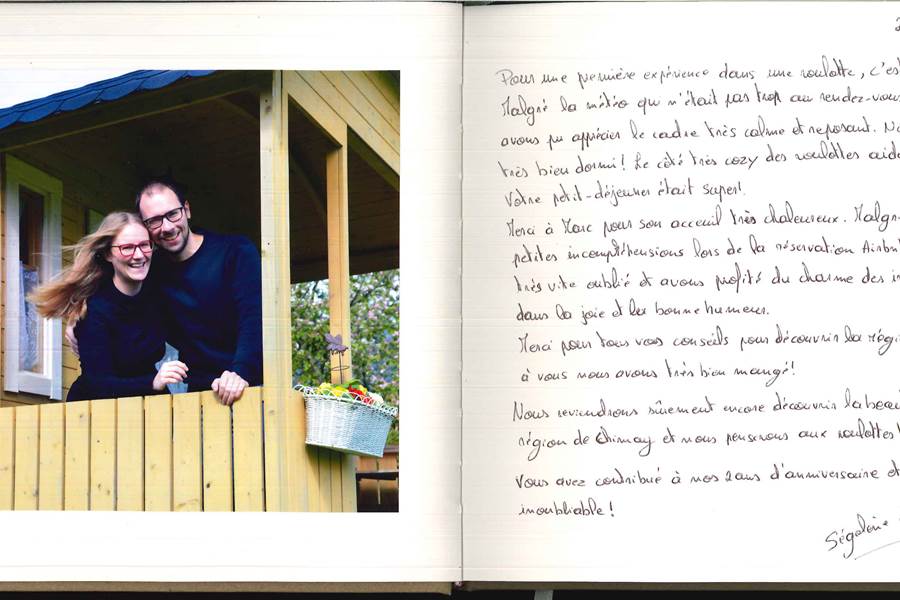 Pour une première expérience dans une roulotte, c'est
Malgré la météo qui n'était pas trop au rendez-vous
avons pu apprécier le cadre très calme et reposant. No
très bien dormi! Le côté très cozy des roulottes aide
Votre petit-déjeuner était super!
Merci à Marc pour son acceuil très chaleureux. Malgré
petites incompréhensions lors de la réservation Airbn
très vite oublié et avons profité du charme des
dans la joie et la bonne humeur.
Merci pour tous vos conseils pour découvrir la régi
à vous nous avons très bien mangé!
Nous reviendrons sûrement encore découvrir la beau
région de Chimay et nous penserons aux roulottes!
Vous avez contribué à nos 2 ans d'anniversaire et
inoubliable!
Ségolène